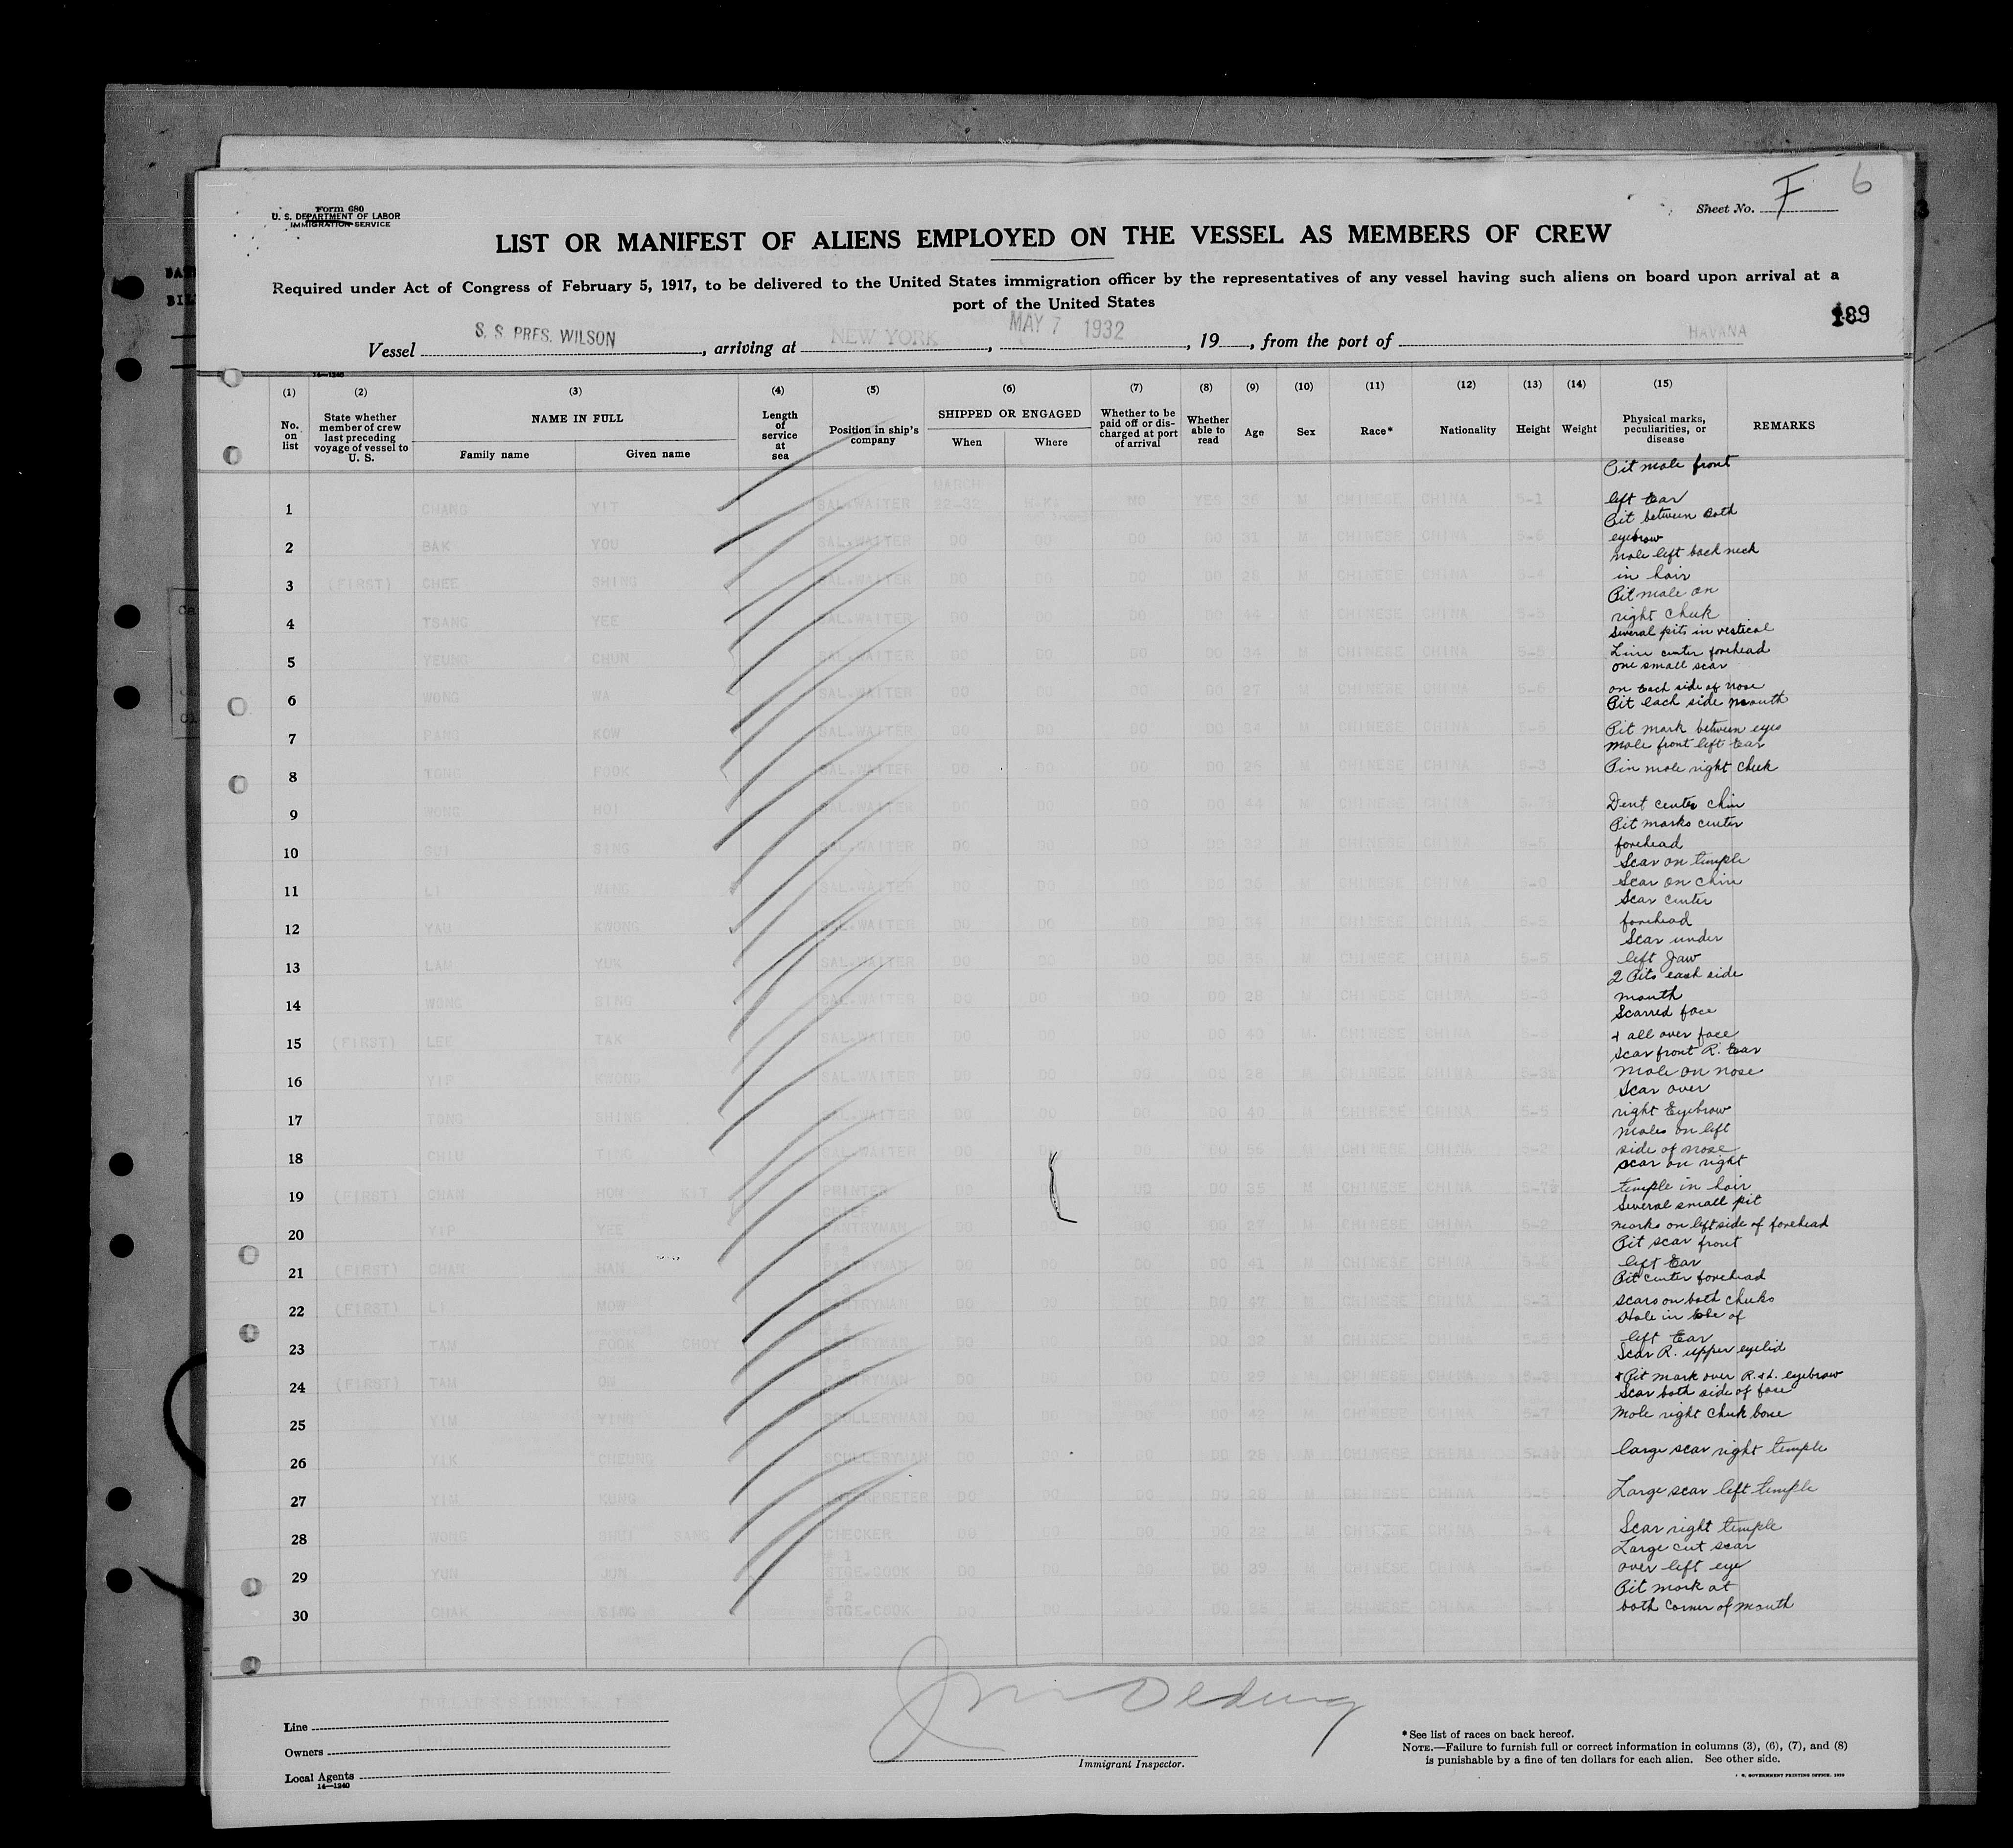 Form 680
U. S. DEPARTMENT OF LABOR
IMMIGRATION SERVICE
Sheet No. F 6
LIST OR MANIFEST OF ALIENS EMPLOYED ON THE VESSEL AS MEMBERS OF CREW
Required under Act of Congress of February 5, 1917, to be delivered to the United States immigration officer by the representatives of any vessel having such aliens on board upon arrival at a
port of the United States
189
Vessel S. S. PRES. WILSON, arriving at NEW YORK, MAY 7 1932, 19, from the port of HAVANA
14—1240
(1) (2) (3) (4) (5) (6) (7) (8) (9) (10) (11) (12) (13) (14) (15)
No. on list State whether member of crew last preceding voyage of vessel to U. S. NAME IN FULL Family name Given name Length of service at sea Position in ship's company SHIPPED OR ENGAGED When Where Whether to be paid off or discharged at port of arrival Whether able to read Age Sex Race* Nationality Height Weight Physical marks, peculiarities, or disease REMARKS
1 CHANG YIT SAL.WAITER MARCH 22-32 H.K. NO YES 36 M CHINESE CHINA 5-1 Pit mole front left Ear
2 BAK YOU SAL.WAITER DO DO DO DO 31 M CHINESE CHINA 5-6 Pit between both eyebrow
3 (FIRST) CHEE SHING SAL.WAITER DO DO DO DO 28 M CHINESE CHINA 5-4 mole left back neck in hair
4 TSANG YEE SAL.WAITER DO DO DO DO 44 M CHINESE CHINA 5-5 Pit mole on right cheek
5 YEUNG CHUN SAL.WAITER DO DO DO DO 34 M CHINESE CHINA 5-5 Several pits in vertical Line center forehead
6 WONG WA SAL.WAITER DO DO DO DO 27 M CHINESE CHINA 5-6 one small scar on each side of nose
7 PANG KOW SAL.WAITER DO DO DO DO 34 M CHINESE CHINA 5-6 Pit each side mouth Pit mark between eyes
8 TONG FOOK SAL.WAITER DO DO DO DO 28 M CHINESE CHINA 5-3 mole front left Ear Pin mole right cheek
9 WONG HOI SAL.WAITER DO DO DO DO 44 M CHINESE CHINA Dent center chin
10 SUI SING SAL.WAITER DO DO DO DO M CHINESE CHINA 5-5 Pit marks center forehead
11 LI WING SAL.WAITER DO DO DO DO 36 M CHINESE CHINA 5-0 Scar on temple Scar on chin
12 YAU KWONG SAL.WAITER DO DO DO DO 34 M CHINESE CHINA 5-5 Scar center forehead
13 LAM YUK SAL.WAITER DO DO DO DO 35 M CHINESE CHINA 5-5 Scar under left Jaw
14 WONG SING SAL.WAITER DO DO DO DO 28 M CHINESE CHINA 5-3 2 Pits each side mouth
15 (FIRST) LEE TAK SAL.WAITER DO DO DO DO 40 M CHINESE CHINA Scarred face + all over face
16 YIP KWONG SAL.WAITER DO DO DO DO 28 M CHINESE CHINA Scar front R. Ear Mole on nose
17 TONG SHING SAL.WAITER DO DO DO DO 40 M CHINESE CHINA 5-5 Scar over right Eyebrow
18 CHIU TING SAL.WAITER DO DO DO DO 55 M CHINESE CHINA 5-2 moles on left side of nose
19 (FIRST) CHAN HON KIT PRINTER DO DO DO 35 M CHINESE CHINA scar on right temple in hair
20 YIP YEE CHIEF PANTRYMAN DO DO DO 27 M CHINESE CHINA 5-2 Several small pit marks on left side of forehead
21 (FIRST) CHAN NAN PANTRYMAN DO DO DO DO 41 M CHINESE CHINA Pit scar front left Ear
22 (FIRST) LI MOW PANTRYMAN DO DO DO DO 47 M CHINESE CHINA 5-3 Pit center forehead scars on both cheeks
23 TAM FOOK CHOY PANTRYMAN DO DO DO DO 32 M CHINESE CHINA 5-5 Hole in lobe of left Ear
24 (FIRST) TAM ON PANTRYMAN DO DO DO DO 29 M CHINESE CHINA Scar R. upper eyelid + Pit mark over R. & L. eyebrow
25 YIM YING SCULLERYMAN DO DO DO DO 42 M CHINESE CHINA 5-7 Scar both side of face Mole right cheek bone
26 YIK CHEUNG SCULLERYMAN DO DO DO DO 28 M CHINESE CHINA large scar right temple
27 YIM KUNG INTERPRETER DO DO DO DO 28 M CHINESE CHINA 5-5 Large scar left temple
28 WONG SHUI SANG CHECKER DO DO DO DO 22 M CHINESE CHINA 5-4 Scar right temple
29 YUN JUN # 1 STGE-COOK DO DO DO DO 39 M CHINESE CHINA 5-6 Large cut scar over left eye
30 CHAK SING # 2 STGE-COOK DO DO DO M CHINESE CHINA 5-4 Pit mark at both corner of mouth
DOLLAR S.S. LINES
Line
Owners
Local Agents
14—1240
Immigrant Inspector.
*See list of races on back hereof.
NOTE.—Failure to furnish full or correct information in columns (3), (6), (7), and (8)
is punishable by a fine of ten dollars for each alien. See other side.